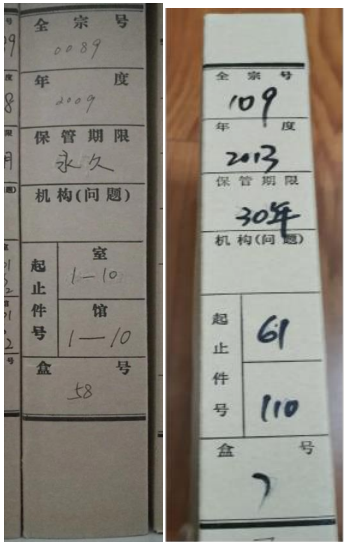 全宗号
0089
年度
2009
保管期限
永久
机构(问题)
起止件号
室
1—10
馆
1—10
盒号
58
全宗号
109
年度
2013
保管期限
30年
机构(问题)
起止件号
61
110
盒号
7